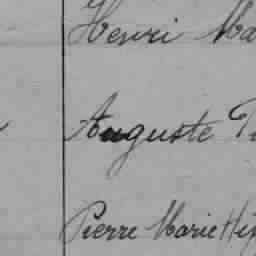 Henri Ma
Auguste
Pierre Marie Hip